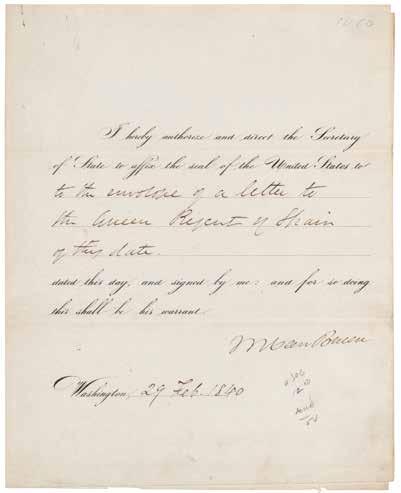 I hereby authorize and direct the Secretary
of State to affix the seal of the United States to
to the envelope of a letter to
the Queen Regent of Spain
of this date.
dated this day, and signed by me: and for so doing
this shall be his warrant.
M Van Buren
Washington, 29 Feb. 1840